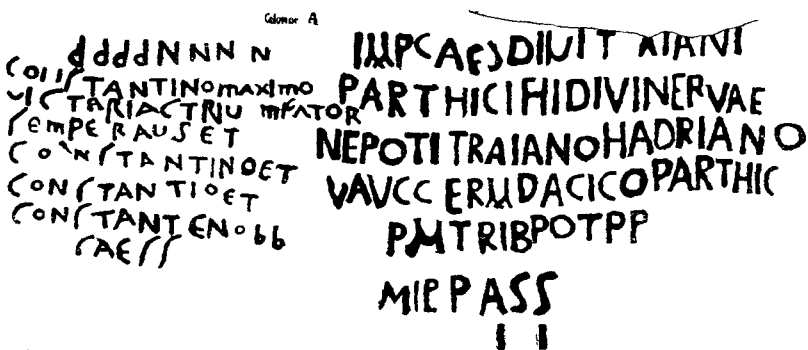 ddddNNNN
CONSTANTINOmaximo
VICTARIACTRIUmFATOR
SEmPERAUSET
CONSTANTINOET
CONSTANTIOET
CONSTANTENObb
CAESS
IMPCAESDIVIT AIANI
PARTHICIFIIDIVINERVAE
NEPOTI TRAIANOHADRIANO
VAVCC ERMDACICOPARTHIC
PMTRIBPOTPP
MIEPASS
II